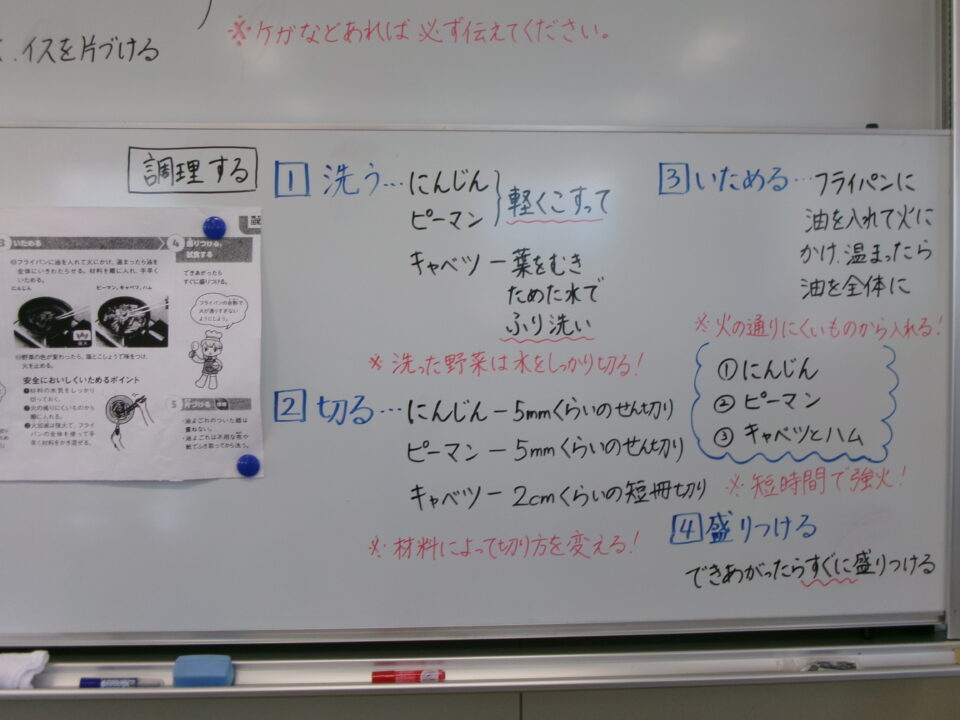 ※ケガなどあれば必ず伝えてください。
イスを片づける
調理する
1 洗う…にんじん
ピーマン
軽くこすって
キャベツー葉をむき
ためた水で
ふり洗い
※洗った野菜は水をしっかり切る!
2 切る…にんじんー5mmくらいのせん切り
ピーマンー5mmくらいのせん切り
キャベツー2cmくらいの短冊切り
※材料によって切り方を変える!
3 いためる…フライパンに
油を入れて火に
かけ、温まったら
油を全体に
※火の通りにくいものから入れる!
①にんじん
②ピーマン
③キャベツとハム
※短時間で強火!
4 盛りつける
できあがったらすぐに盛りつける
3 いためる
フライパンに油を入れて火にかけ、温まったら油を
全体にいきわたらせる。材料を順に入れ、手早く
いためる。
にんじん
ピーマン、キャベツ、ハム
野菜の色が変わったら、塩とこしょうで味をつけ、
火を止める。
安全においしくいためるポイント
❶材料の水気をしっかり
切っておく。
❷火の通りにくいものから
順に入れる。
❸火加減は強火で、フライ
パンの全体を使って手
早く材料をかき混ぜる。
4 盛りつける、
試食する
できあがったら
すぐに盛りつける。
フライパンの余熱で
火が通りすぎない
ようにしよう。
5 片づける
・油よごれのついた皿は
重ねない。
・油よごれは不用な布や
紙でふき取ってから洗う。